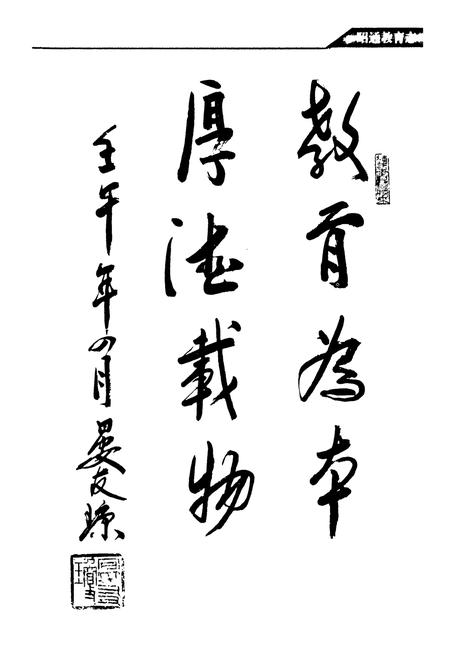 昭通教育志
教育为本
厚德载物
壬午年四月晏友琼